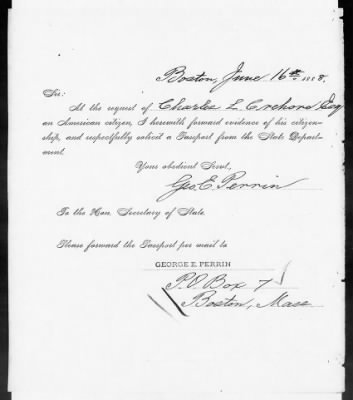 Boston, June 16th 1888.
Sir:
At the request of Charles L. Crehore Esq
an American citizen, I herewith forward evidence of his citizen-
ship, and respectfully solicit a Passport from the State Depart-
ment.
Your obedient Servt,
Geo. E. Perrin
To the Hon. Secretary of State.
Please forward the Passport per mail to
GEORGE E. PERRIN
P.O. Box 7
Boston, Mass